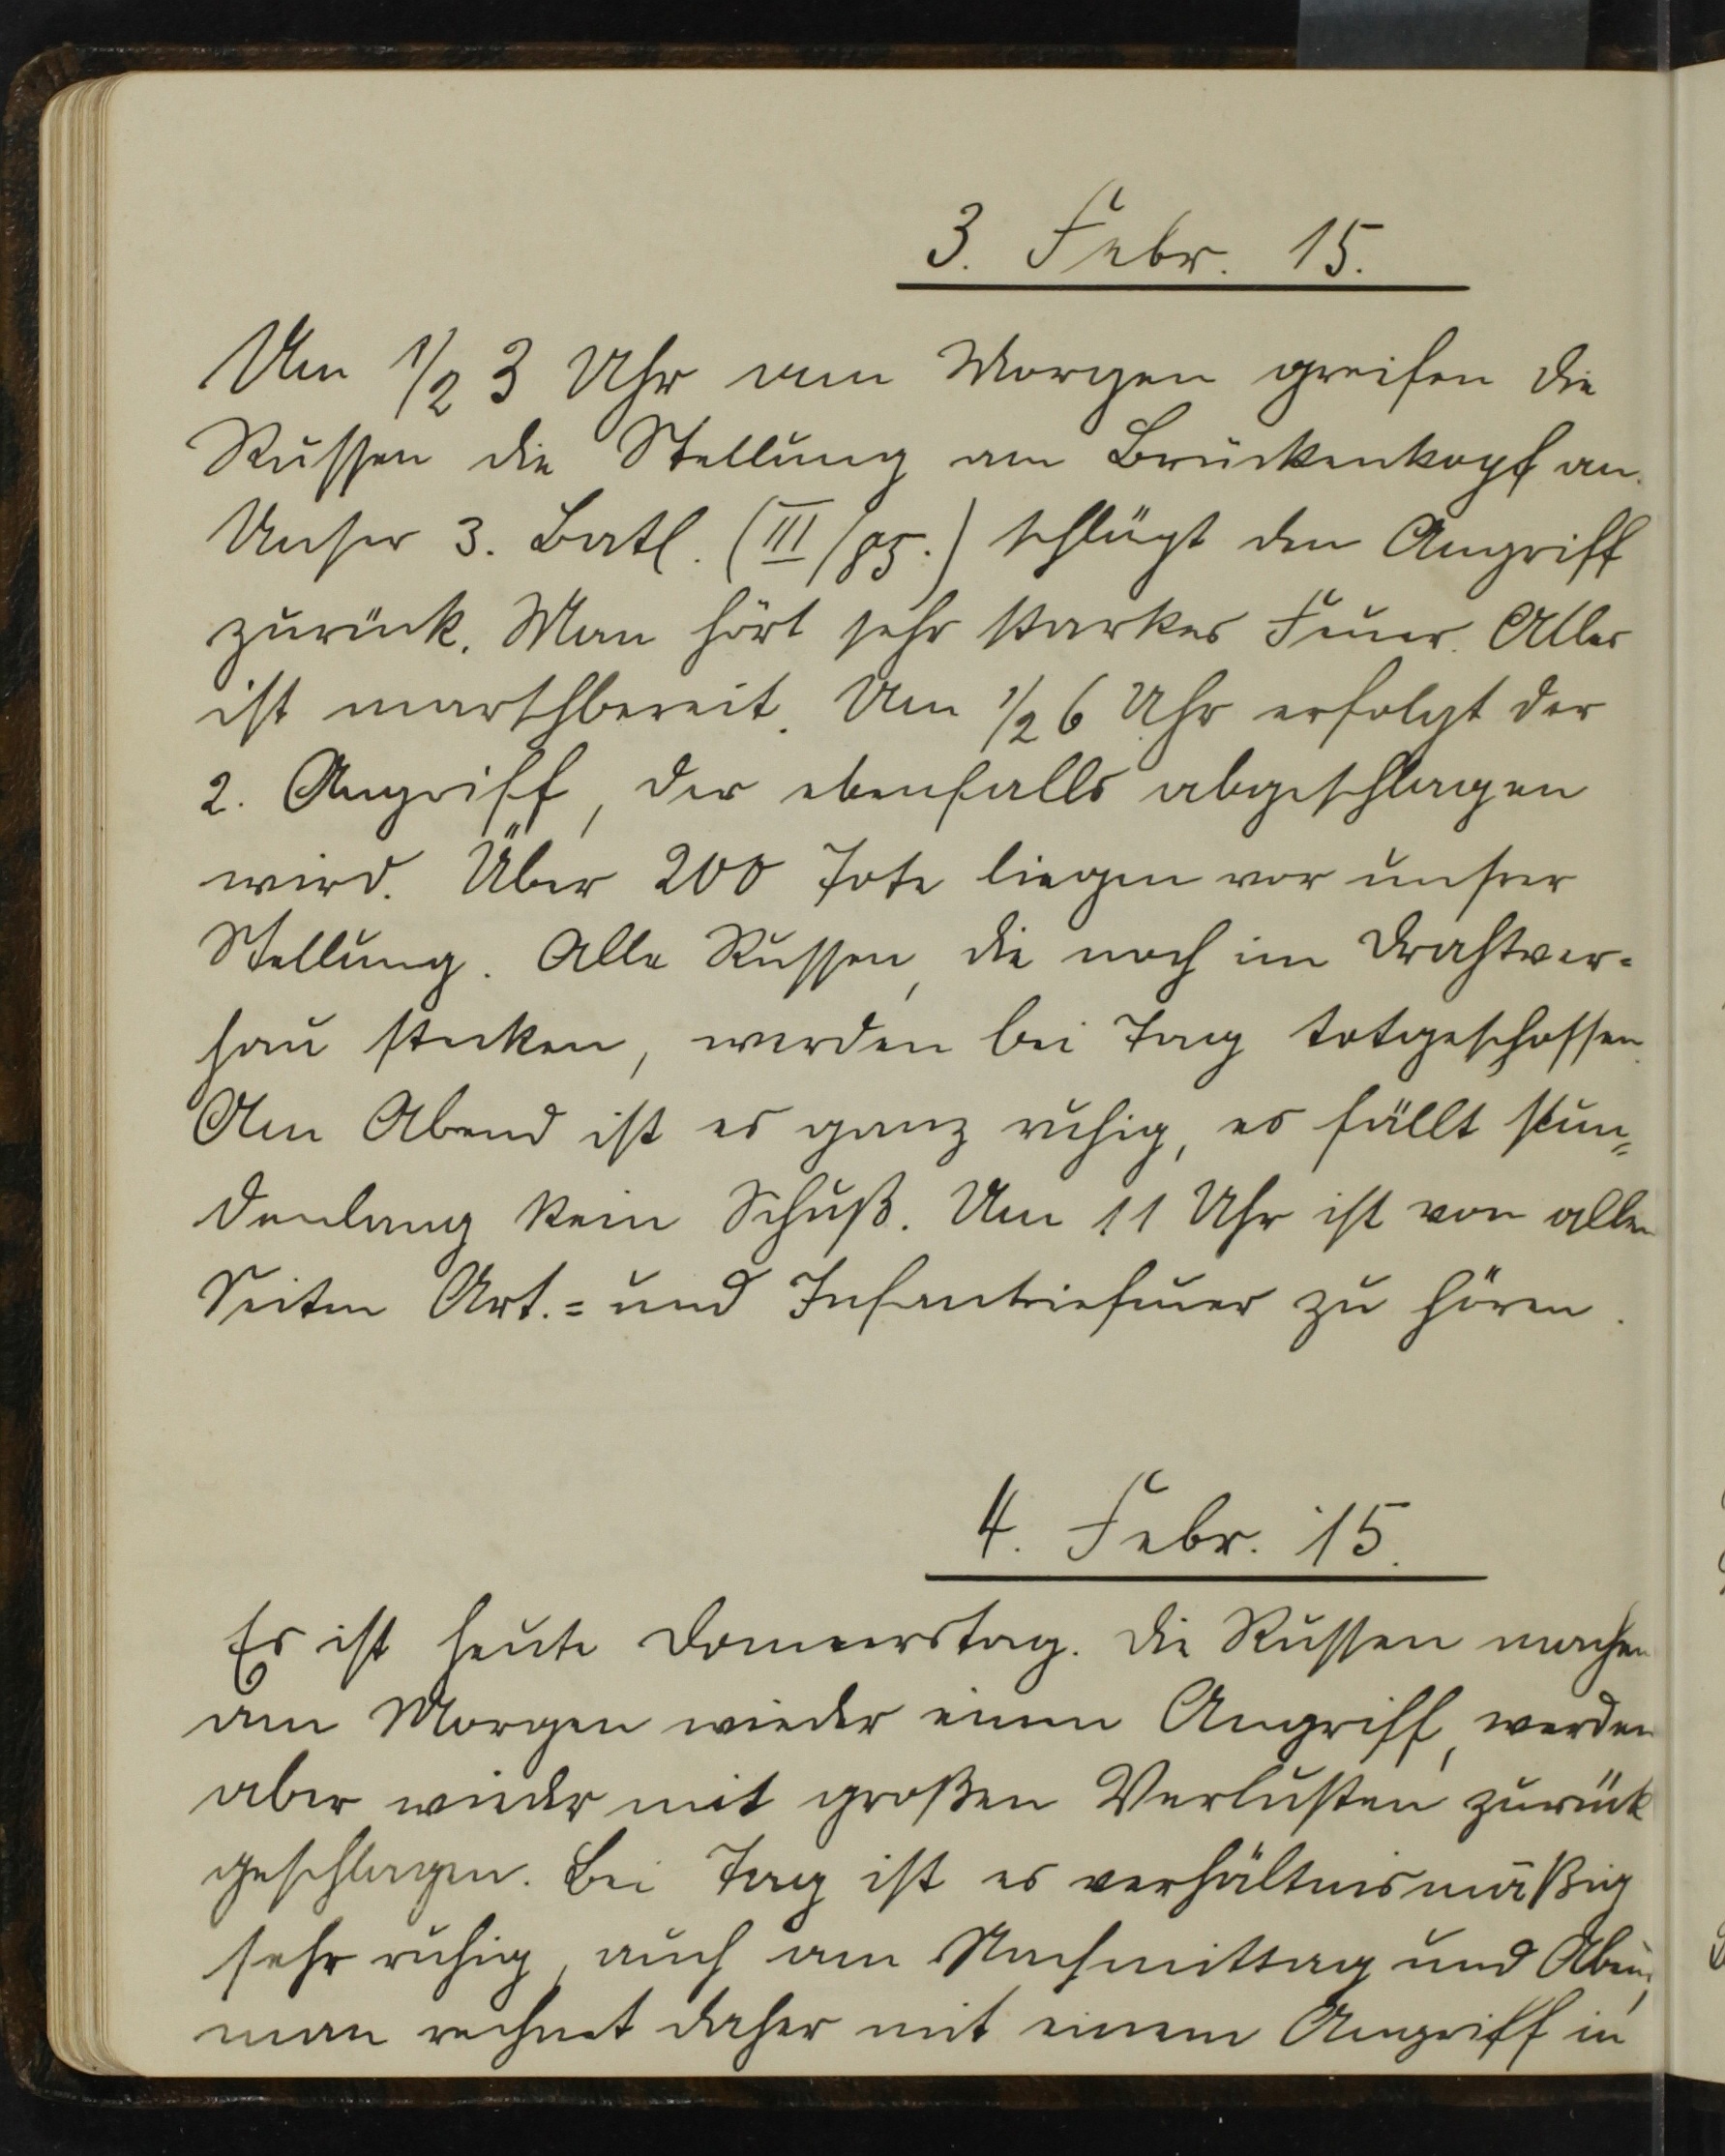 3. Febr. 15.
Um 1/2 3 Uhr am Morgen greifen die
Russen die Stellung am Brückenkopf an.
Unser 3. Batl. (III/85.) schlägt den Angriff
zurück. Man hört sehr starkes Feuer. Alles
ist marschbereit. Um 1/2 6 Uhr erfolgt der
2. Angriff, der ebenfalls abgeschlagen
wird. Über 200 Tote liegen vor unsrer
Stellung. Alle Russen, die noch im Drahtver-
hau stecken, werden bei Tag totgeschossen.
Am Abend ist es ganz ruhig, es fällt stun-
denlang kein Schuß. Um 11 Uhr ist von allen
Seiten Art.- und Infantriefeuer zu hören.
4. Febr. 15.
Es ist heute Donnerstag. Die Russen machen
am Morgen wieder einen Angriff, werden
aber wieder mit großen Verlusten zurück
geschlagen. Bei Tag ist es verhältnismäßig
sehr ruhig, auch am Nachmittag und Abend,
man rechnet daher mit einem Angriff in